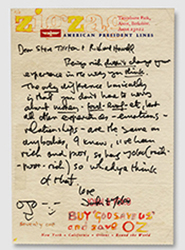 zigzag
Tittenhurst Park,
Ascot, Berkshire
AMERICAN PRESIDENT LINES
Dear Steve Tilston & Richard Howell
Being rich doesn't change your
experience in the way you think.
The only difference basically
is that you don't have to worry
about money - food - roof - etc, but
all other experiences - emotions -
relationships - are the same as
anybodies, I know, I've been
rich and poor, so has yoko (rich -
poor - rich) so whadya think
of that
love
John
BUY 'GOD SAVE US'
and save OZ
New York • California • Orient • Round the World